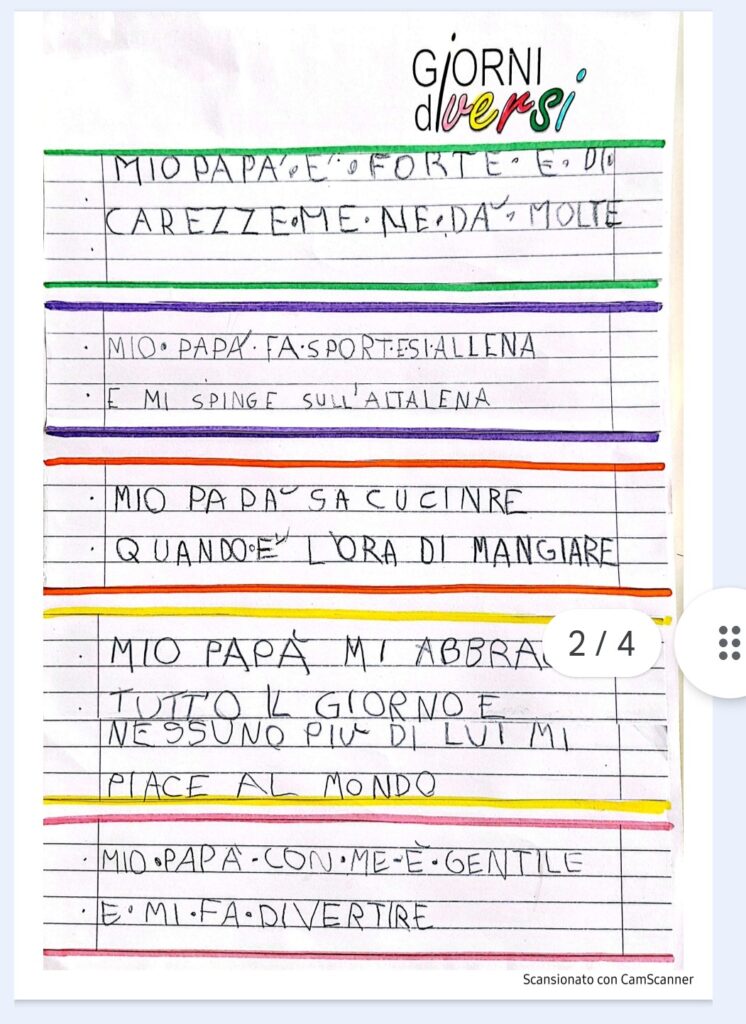 GiORNI
diversi
MIO PAPA'. E'. FORTE. E. DI
CAREZZE.ME.NE.DA'. MOLTE
. MIO. PAPA'.FA.SPORT.E.SI.ALLENA
. E MI SPINGE SULL'ALTALENA
. MIO PAPA' SA CUCINRE
. QUANDO.E' L'ORA DI MANGIARE
. MIO PAPÀ MI
2 / 4
. TUTTO IL GIORNO E
NESSUNO PIÙ DI LUI MI
PIACE AL MONDO
. MIO.PAPÀ.CON.ME.È.GENTILE
. E.MI.FA.DIVERTIRE
Scansionato con CamScanner